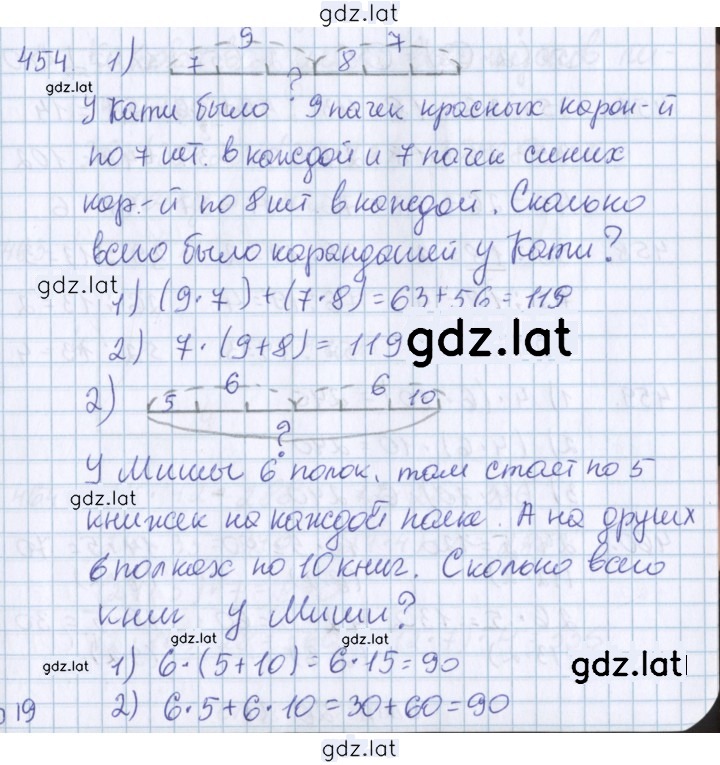 gdz.lat
454. 1) 9 7
7 8
gdz.lat
?
У Кати было 9 пачек красных каран-й
по 7 шт. в каждой и 7 пачек синих
кар.-й по 8 шт в каждой. Сколько
всего было карандашей у Кати?
gdz.lat
1) (9·7)+(7·8)=63+56=119
2) 7·(9+8)=119
gdz.lat
2) 6 6
5 10
?
У Мишы 6 полок, там стает по 5
gdz.lat
книжек на каждой полке. А на других
6 полках по 10 книг. Сколько всего
книг у Миши?
gdz.lat gdz.lat
gdz.lat 1) 6·(5+10)=6·15=90
gdz.lat
19 2) 6·5+6·10=30+60=90
gdz.lat